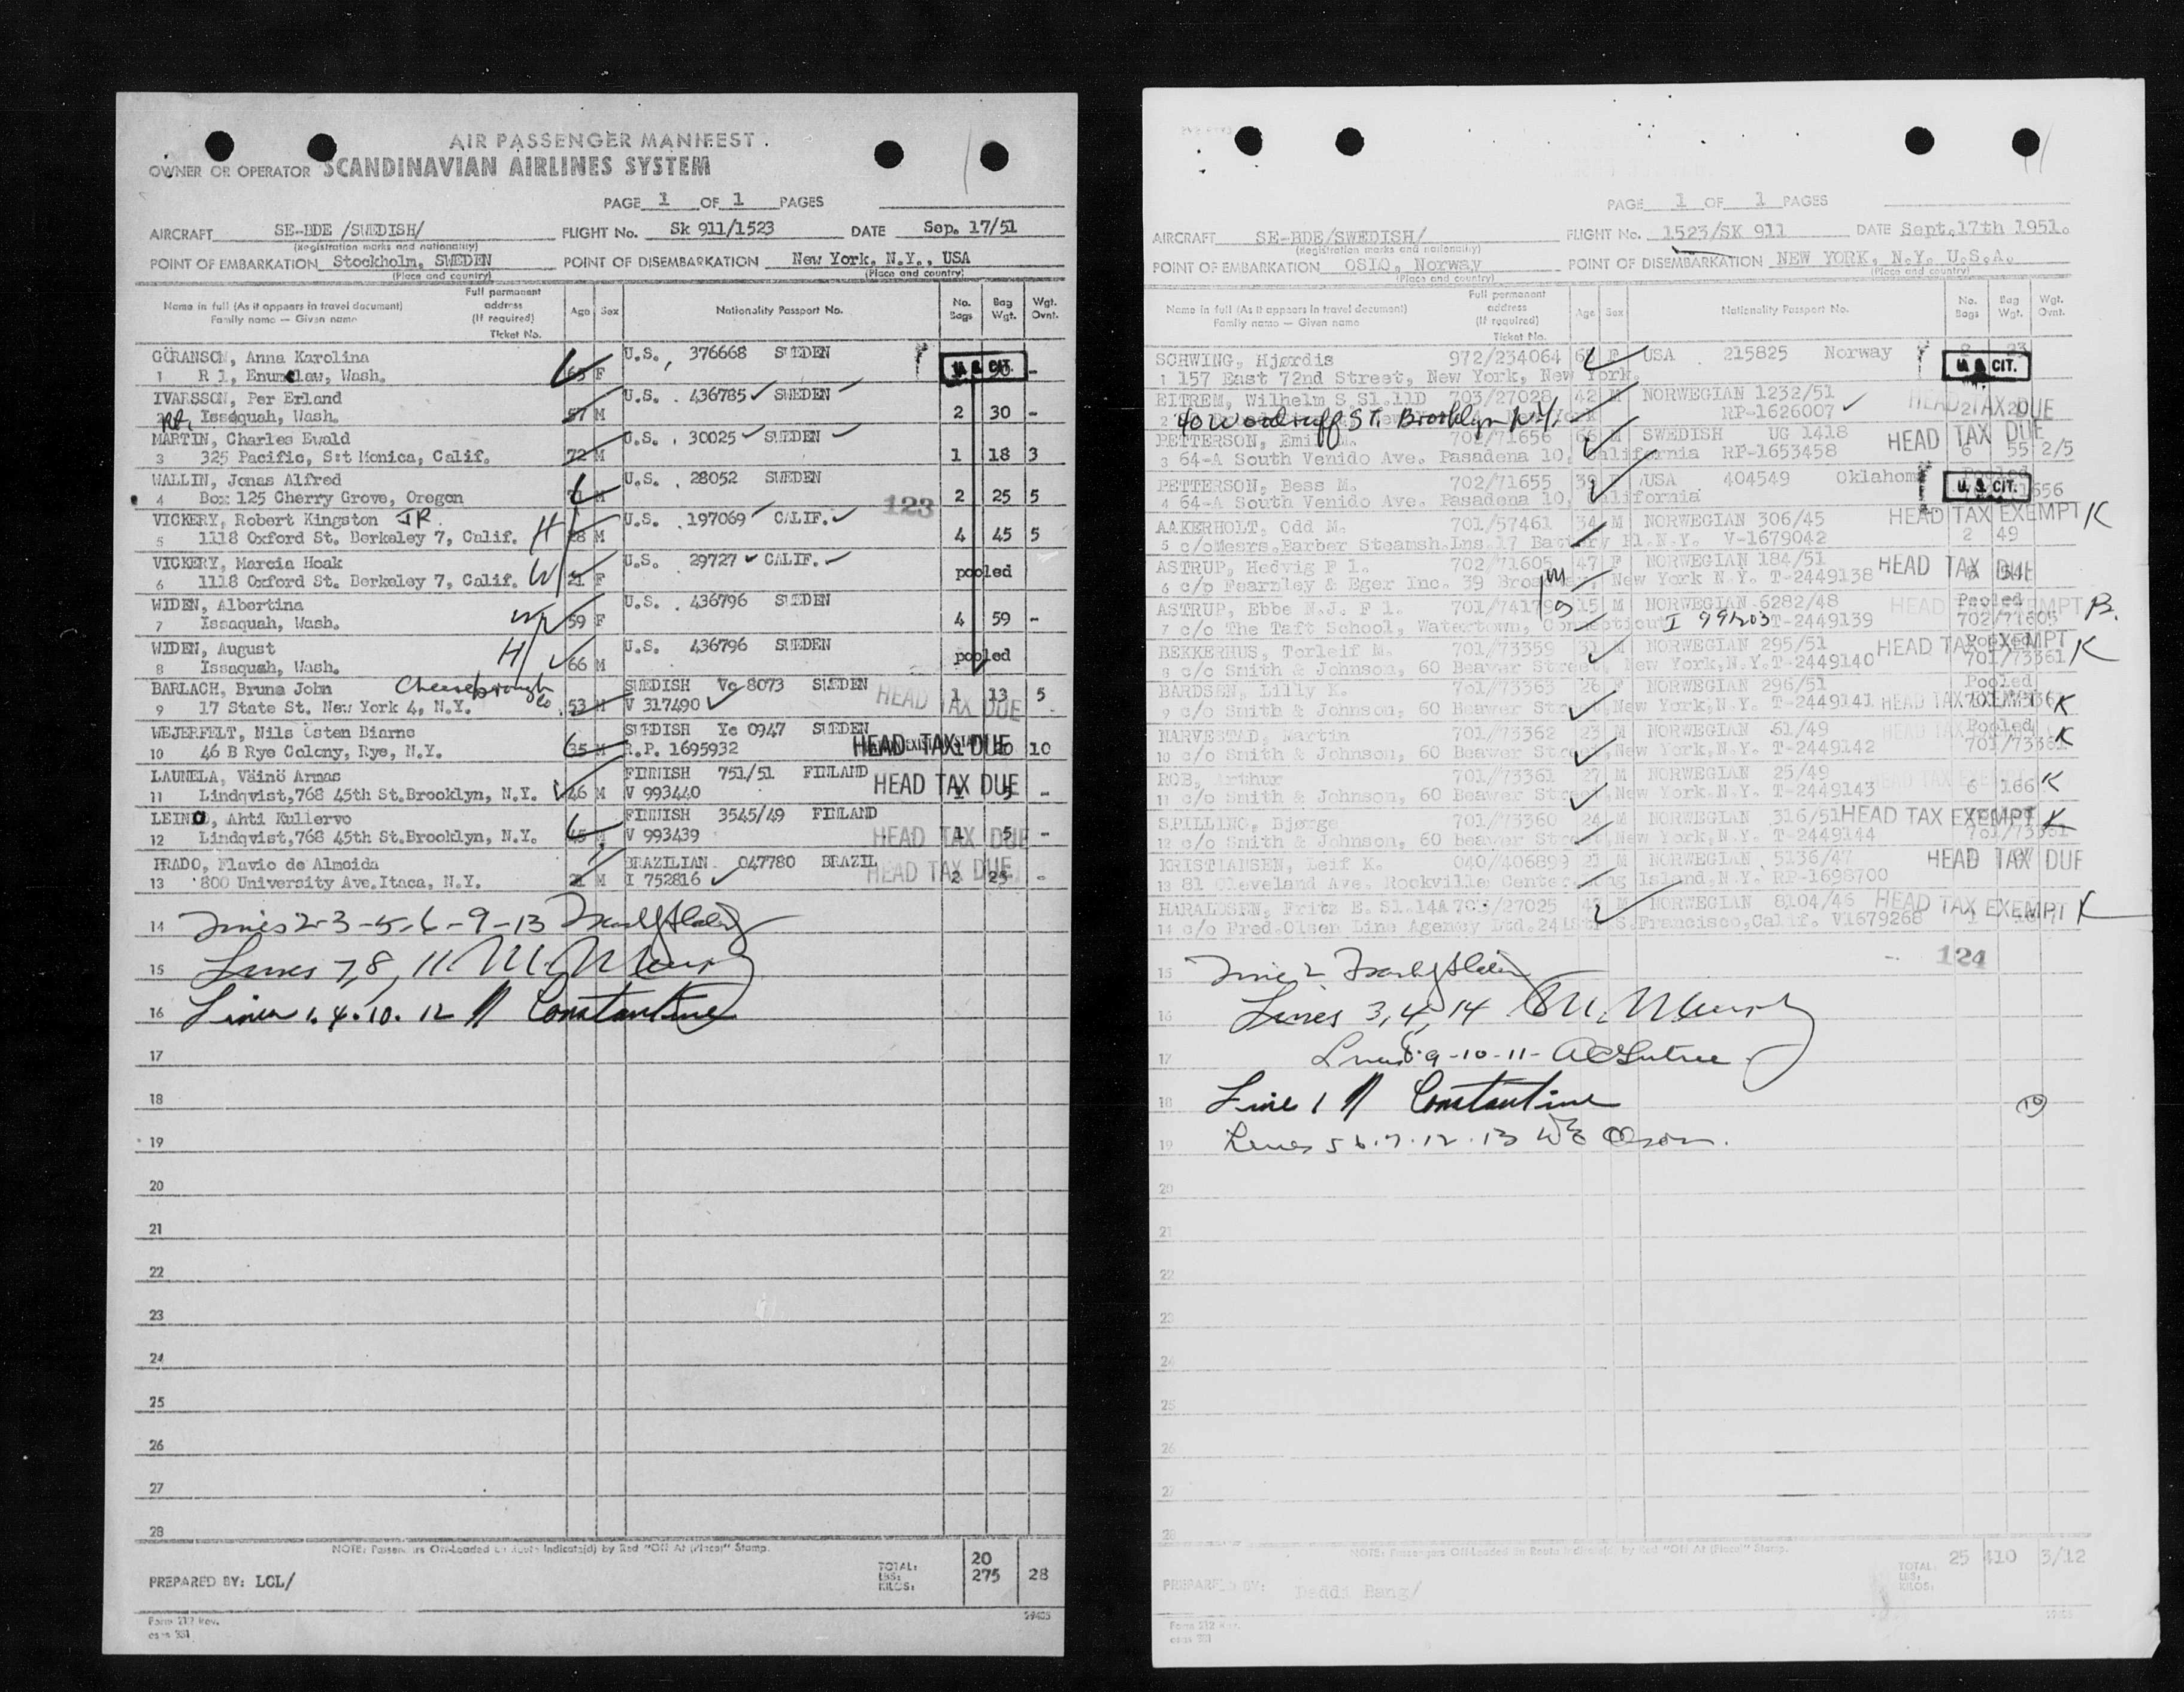 AIR PASSENGER MANIFEST
OWNER OR OPERATOR SCANDINAVIAN AIRLINES SYSTEM
PAGE 1 OF 1 PAGES
AIRCRAFT SE-BDE /SWEDISH/ FLIGHT No. Sk 911/1523 DATE Sep. 17/51
(Registration marks and nationality)
POINT OF EMBARKATION Stockholm, SWEDEN POINT OF DISEMBARKATION New York, N.Y., USA
(Place and country) (Place and country)
Name in full (As it appears in travel document) Family name — Given name Full permanent address (If required) Ticket No. Age Sex Nationality Passport No. No. Bags Bag Wgt. Wgt. Ovnt.
GÖRANSON, Anna Karolina U.S., 376668 SWEDEN
1 R 1, Enumclaw, Wash. 65 F U.S. CIT. -
IVARSSON, Per Erland U.S. 436785 SWEDEN
Issaquah, Wash. 57 M 2 30 -
MARTIN, Charles Ewald U.S. 30025 SWEDEN
3 325 Pacific, S:t Monica, Calif. 72 M 1 18 3
WALLIN, Jonas Alfred U.S. 28052 SWEDEN
4 Box 125 Cherry Grove, Oregon M 2 25 5
123
VICKERY, Robert Kingston JR. U.S. 197069 CALIF.
5 1118 Oxford St. Berkeley 7, Calif. H 28 M 4 45 5
VICKERY, Marcia Hoak U.S. 29727 CALIF.
6 1118 Oxford St. Berkeley 7, Calif. W 21 F pooled
WIDEN, Albertina U.S. 436796 SWEDEN
7 Issaquah, Wash. 59 F 4 59 -
WIDEN, August U.S. 436796 SWEDEN
8 Issaquah, Wash. H 66 M pooled
BARLACH, Bruno John Cheesebrough Co. SWEDISH Vc 8073 SWEDEN HEAD TAX DUE
9 17 State St. New York 4, N.Y. 53 M V 317490 1 13 5
WEJERFELT, Nils Östen Biarne SWEDISH Yc 0947 SWEDEN
10 46 B Rye Colony, Rye, N.Y. 35 M R.P. 1695932 HEAD TAX DUE 10
LAUNELA, Väinö Armas FINNISH 751/51 FINLAND
11 Lindqvist, 768 45th St. Brooklyn, N.Y. 46 M V 993440 HEAD TAX DUE -
LEINO, Ahti Kullervo FINNISH 3545/49 FINLAND
12 Lindqvist, 768 45th St. Brooklyn, N.Y. 45 V 993439 HEAD TAX DUE 1 5 -
PRADO, Flavio de Almeida BRAZILIAN 047780 BRAZIL
13 800 University Ave. Itaca, N.Y. 21 M I 752816 HEAD TAX DUE 2 25 -
14 Lines 2-3-5-6-9-13
15 Lines 7, 8, 11
16 Lines 1.4.10.12 Constantine
17
18
19
20
21
22
23
24
25
26
27
28
NOTE: Passengers Off-Loaded En Route Indicate(d) by Red "Off At (Place)" Stamp.
PREPARED BY: LCL/ TOTAL: LBS: KILOS: 20 275 28
Form 212 Rev.
PAGE 1 OF 1 PAGES
AIRCRAFT SE-BDE/SWEDISH/ FLIGHT No. 1523/SK 911 DATE Sept.17th 1951.
(Registration marks and nationality)
POINT OF EMBARKATION OSLO, Norway POINT OF DISEMBARKATION NEW YORK, N.Y. U.S.A.
(Place and country) (Place and country)
Name in full (As it appears in travel document) Family name — Given name Full permanent address (If required) Ticket No. Age Sex Nationality Passport No. No. Bags Bag Wgt. Wgt. Ovnt.
SCHWING, Hjørdis 972/234064 F USA 215825 Norway 2 23
1 157 East 72nd Street, New York, New York. U.S. CIT.
EITREM, Wilhelm S. Sl.11D 703/27028 42 M NORWEGIAN 1232/51
2 40 Woodruff ST. Brooklyn N.Y. RP-1626007 HEAD TAX DUE
PETTERSON, Emil M. 702/71656 66 M SWEDISH UG 1418 HEAD TAX DUE
3 64-A South Venido Ave. Pasadena 10, California RP-1653458 6 55 2/5
PETTERSON, Bess M. 702/71655 39 F USA 404549 Oklahoma Pooled
4 64-A South Venido Ave. Pasadena 10, California U.S. CIT.
AAKERHOLT, Odd M. 701/57461 34 M NORWEGIAN 306/45 HEAD TAX EXEMPT K
5 c/o Mears. Barber Steamsh.Lns. 17 Battery Pl. N.Y. V-1679042 2 49
ASTRUP, Hedvig F 1. 702/71605 47 F NORWEGIAN 184/51 HEAD TAX DUE
6 c/o Fearnley & Eger Inc. 39 Broadway New York N.Y. T-2449138
ASTRUP, Ebbe N.J. F 1. 701/74179 15 M NORWEGIAN 6282/48 Pooled HEAD TAX EXEMPT B.
7 c/o The Taft School, Watertown, Connecticut I 991203 T-2449139 702/71605
BEKKERHUS, Torleif M. 701/73359 31 M NORWEGIAN 295/51 Pooled HEAD TAX EXEMPT K
8 c/o Smith & Johnson, 60 Beaver Street, New York, N.Y. T-2449140 701/73361
BARDSEN, Lilly K. 701/73363 26 F NORWEGIAN 296/51 Pooled
9 c/o Smith & Johnson, 60 Beaver Street, New York, N.Y. T-2449141 HEAD TAX EXEMPT K
NARVESTAD, Martin 701/73362 23 M NORWEGIAN 61/49 Pooled
10 c/o Smith & Johnson, 60 Beaver Street, New York, N.Y. T-2449142 701/73361 K
ROB, Arthur 701/73361 27 M NORWEGIAN 25/49
11 c/o Smith & Johnson, 60 Beaver Street, New York. N.Y. T-2449143 6 166 K
SPILLING, Bjørge 701/73360 24 M NORWEGIAN 316/51 HEAD TAX EXEMPT K
12 c/o Smith & Johnson, 60 Beaver Street, New York, N.Y. T-2449144 701/73361
KRISTIANSEN, Leif K. 040/406899 M NORWEGIAN 5136/47 HEAD TAX DUE
13 81 Cleveland Ave. Rockville Center. Long Island, N.Y. RP-1698700
HARALDSEN, Fritz E. Sl.14A 703/27025 M NORWEGIAN 8104/46 HEAD TAX EXEMPT K
14 c/o Fred.Olsen Line Agency Ltd. S.Francisco, Calif. V1679268
15 Line 2 124
16 Lines 3, 4, 14
17 Lines 8-9-10-11-
18 Line 1 Constantine
19 Lines 5 6.7.12.13 WE Olson.
20
21
22
23
24
25
26
27
28
NOTE: Passengers Off-Loaded En Route Indicate(d) by Red "Off At (Place)" Stamp.
PREPARED BY: Daddi Bang/ TOTAL: LBS: KILOS: 25 410 3/12
Form 212 Rev.